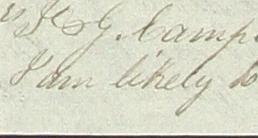 J. Camp
I am likely to